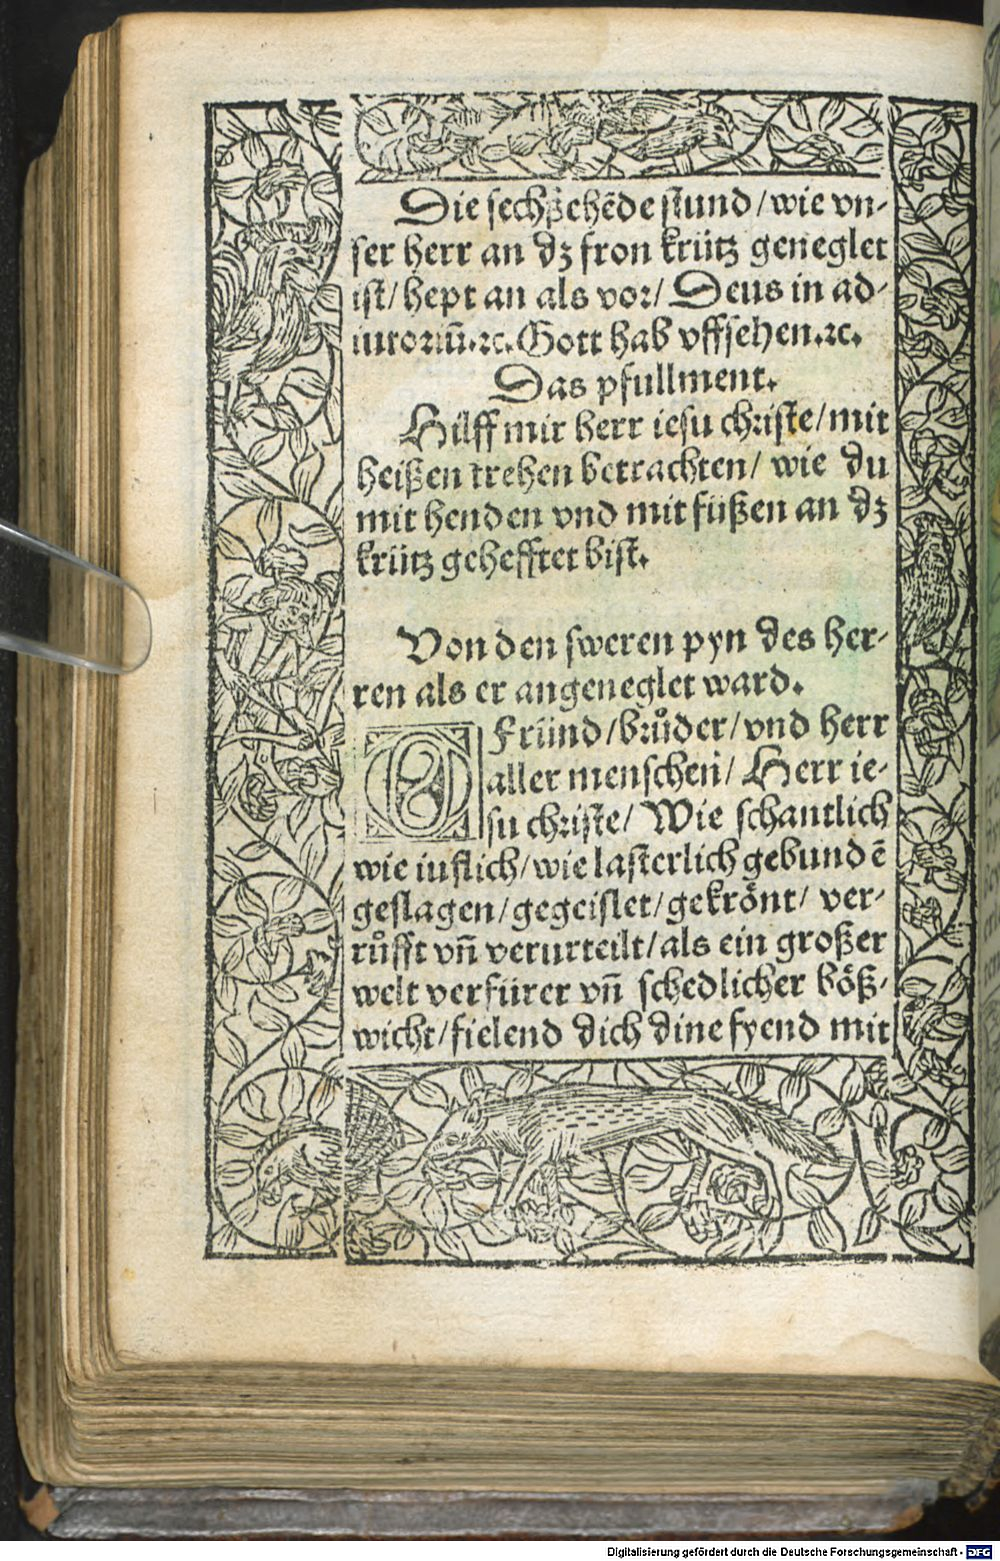 Die sechzehēde stund/wie vn-
ser herr an dz fron krütz geneglet
ist/hept an als vor/Deus in ad-
iutoriū.ꝛc.Gott hab vffsehen.ꝛc.
Das pfullment.
Hilff mir herr iesu christe/mit
heißen trehen betrachten/ wie du
mit henden vnd mit füßen an dz
krütz gehefftet bist.
Von den sweren pyn des her-
ren als er angeneglet ward.
O Fründ/brůder/vnd herr
aller menschen/ Herr ie-
su christe/ Wie schantlich
wie iustlich/wie lasterlich gebundē
geslagen/gegeislet/gekrönt/ ver-
růfft vñ verurteilt/als ein großer
welt verfürer vñ schedlicher böß-
wicht/fielend dich dine fyend mit
Digitalisierung gefördert durch die Deutsche Forschungsgemeinschaft - DFG